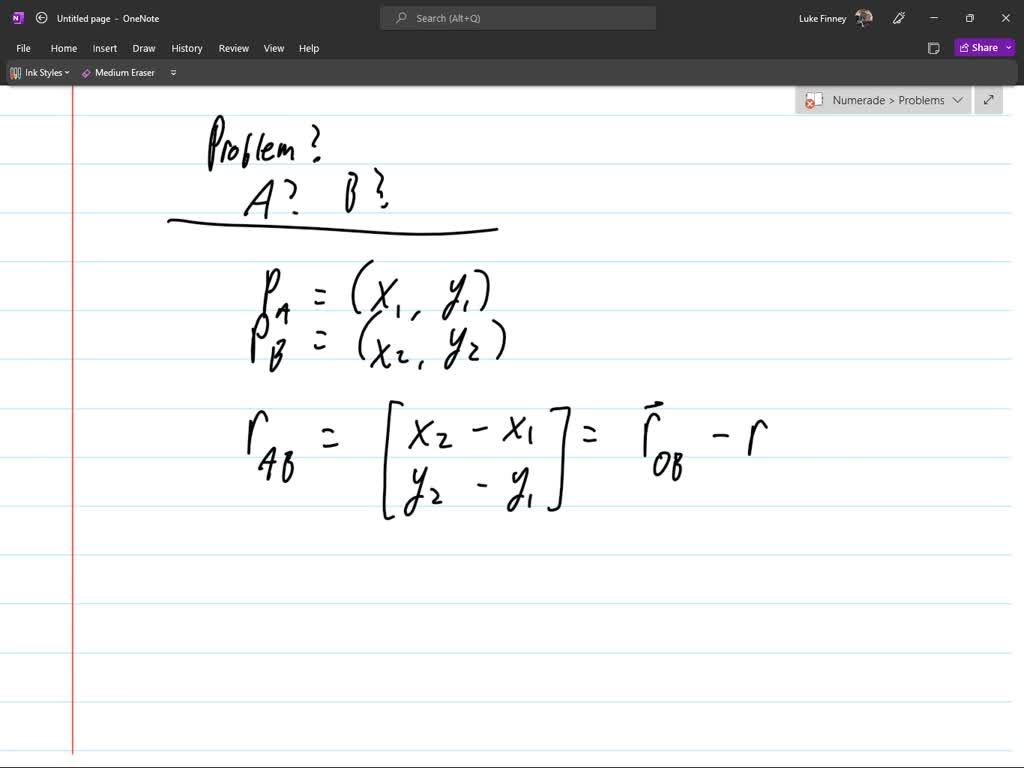 Untitled page - OneNote
Search (Alt+Q)
Luke Finney
File Home Insert Draw History Review View Help
Share
Ink Styles Medium Eraser
Numerade > Problems
Problem?
A? B?
P_A = (x_1, y_1)
P_B = (x_2, y_2)
r_AB = [x_2 - x_1] = \vec{r}_OB - r
[y_2 - y_1]